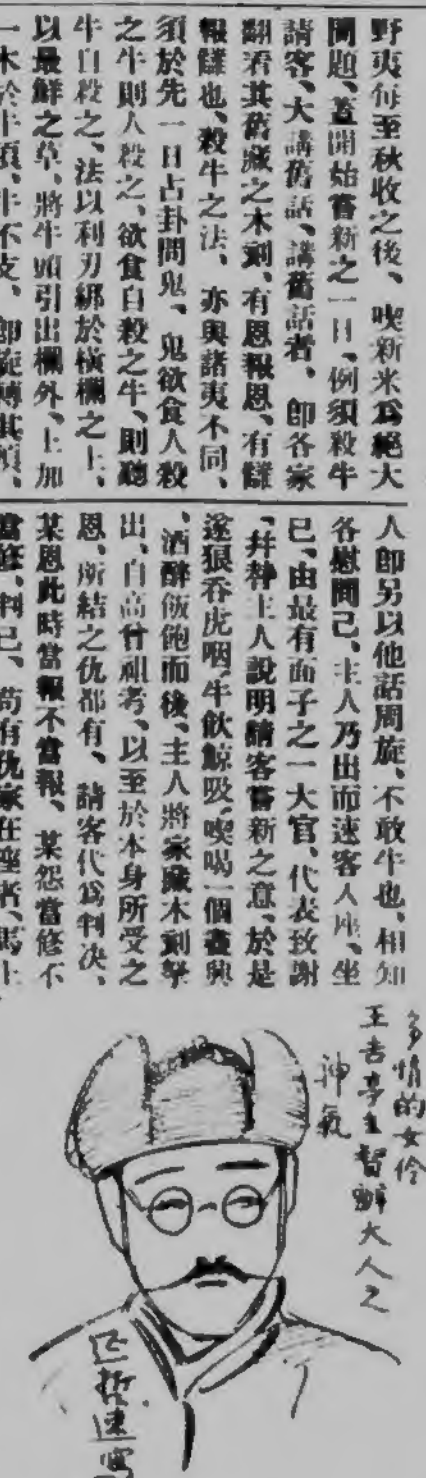 野夷每至秋收之後、喫新米爲絕大
問題、蓋開始嘗新之一日、例須殺牛
請客、大講舊話、講舊話者、卽各家
翻看其舊藏之木刻、有恩報恩、有讎
報讎也、殺牛之法、亦與諸夷不同、
須於先一日占卦問鬼、鬼欲食人殺
之牛則人殺之、欲食自殺之牛、則聽
牛自殺之、法以利刃綁於橫欄之上、
以最鮮之草、將牛頭引出欄外、上加
一木於牛項、牛不支、卽旋轉其項、
人卽另以他話周旋、不敢牛也、相知
各慰問已、主人乃出而速客入座、坐
已、由最有面子之一大官、代表致謝
、幷替主人說明請客嘗新之意、於是
遂狼吞虎咽、牛飲鯨吸、喫喝一個盡興
、酒醉飯飽而後、主人將家藏木刻拏
出、自高曾祖考、以至於本身所受之
恩、所結之仇都有、請客代爲判決、
某恩此時當報不當報、某怨當修不
當修、判已、苟有仇家在座者、馬上
多情的女伶
王吉亭主智辦大人之
神氣
速寫